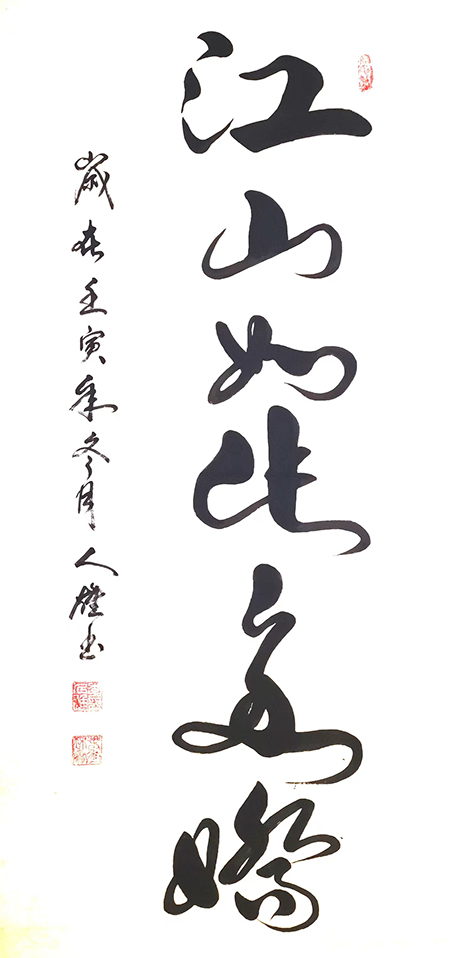 江山如此多嬌
歲在壬寅年冬月人雄书